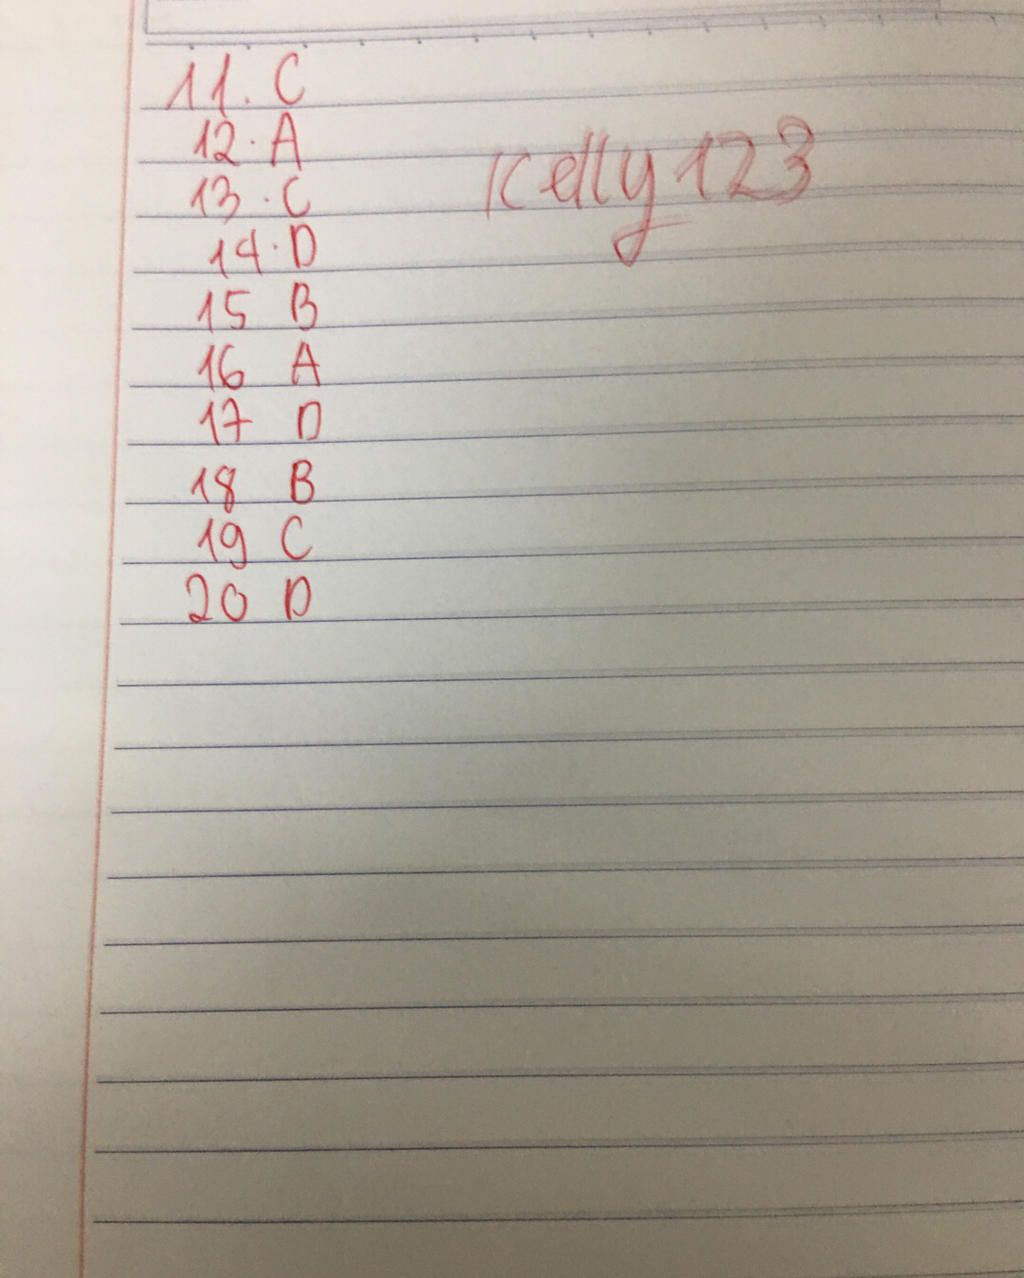 11. C
12. A
13. C
14. D
15 B
16 A
17 D
18 B
19 C
20 D
Kelly 123